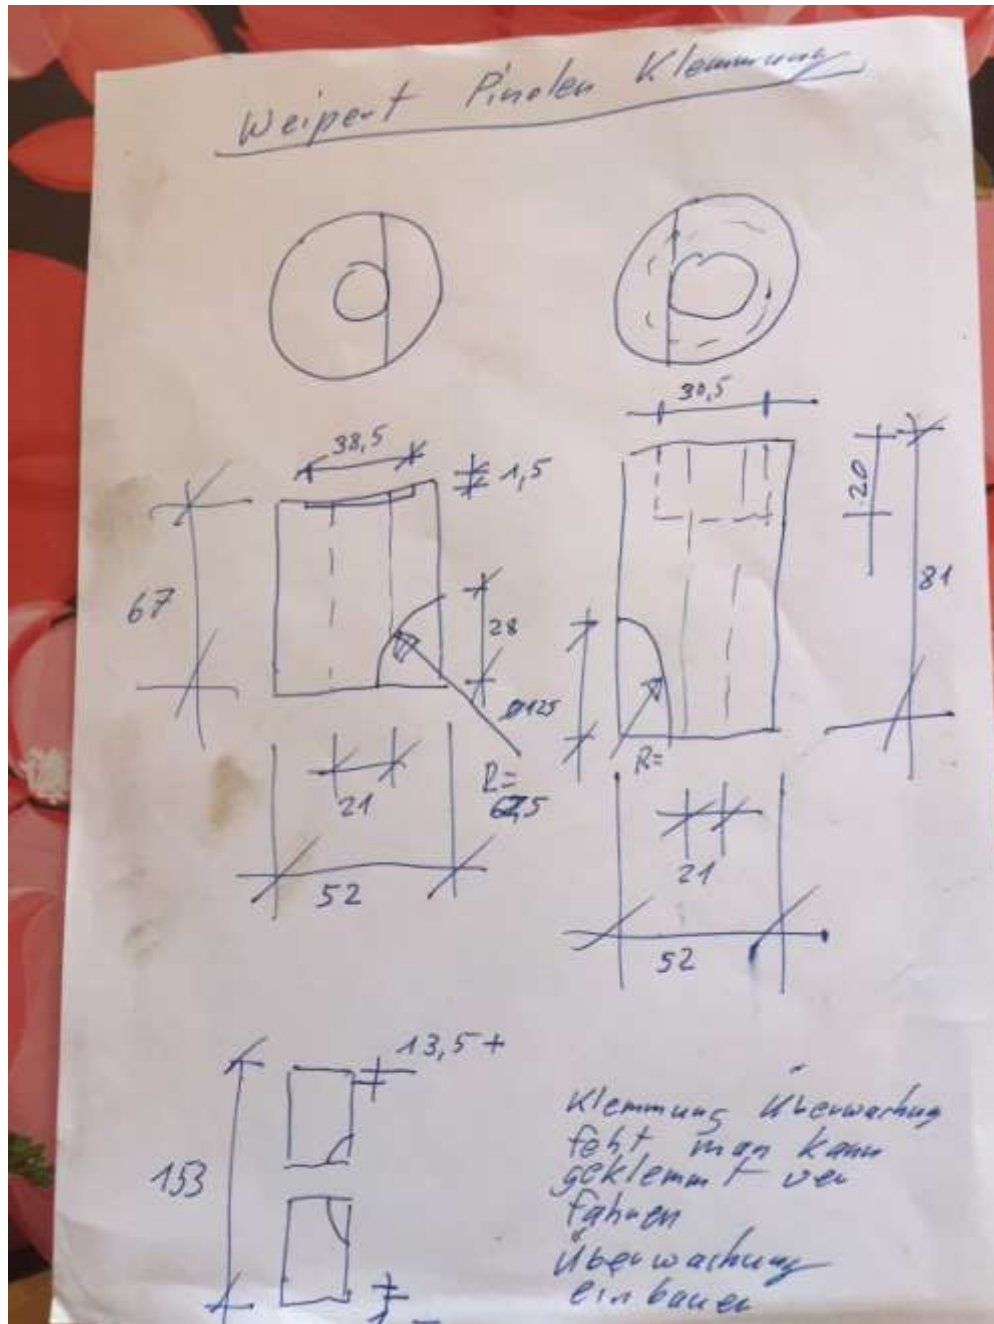 Weipert Pinolen Klemmung
30,5
38,5
1,5
20
67
28
81
ø125
R=
R=
62,5
21
21
52
52
13,5+
153
Klemmung Überwachung
fehlt man kann
geklemmt ver
fahren
Überwachung
einbauen